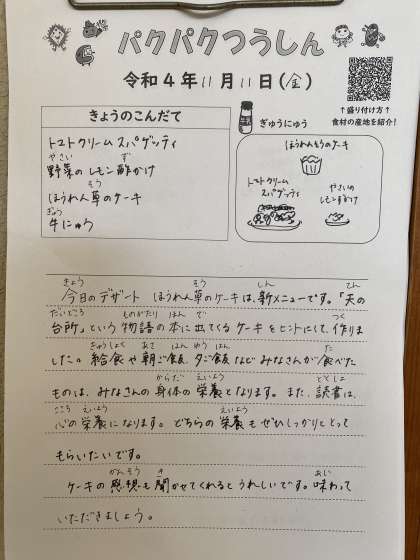 パクパクつうしん
令和4年11月11日(金)
↑盛り付け方↑
食材の産地を紹介!
きょうのこんだて
トマトクリームスパゲッティ
野菜のレモン酢かけ
ほうれん草のケーキ
牛にゅう
ぎゅうにゅう
ほうれんそうのケーキ
トマトクリーム
スパゲッティ
やさいの
レモンずかけ
今日のデザート ほうれん草のケーキは、新メニューです。「天の
台所」という物語の本に出てくるケーキをヒントにして、作りま
した。給食や朝ご飯、夕ご飯などみなさんが食べた
ものは、みなさんの身体の栄養となります。また、読書は、
心の栄養になります。どちらの栄養もぜひしっかりととって
もらいたいです。
ケーキの感想も聞かせてくれるとうれしいです。味わって
いただきましょう。